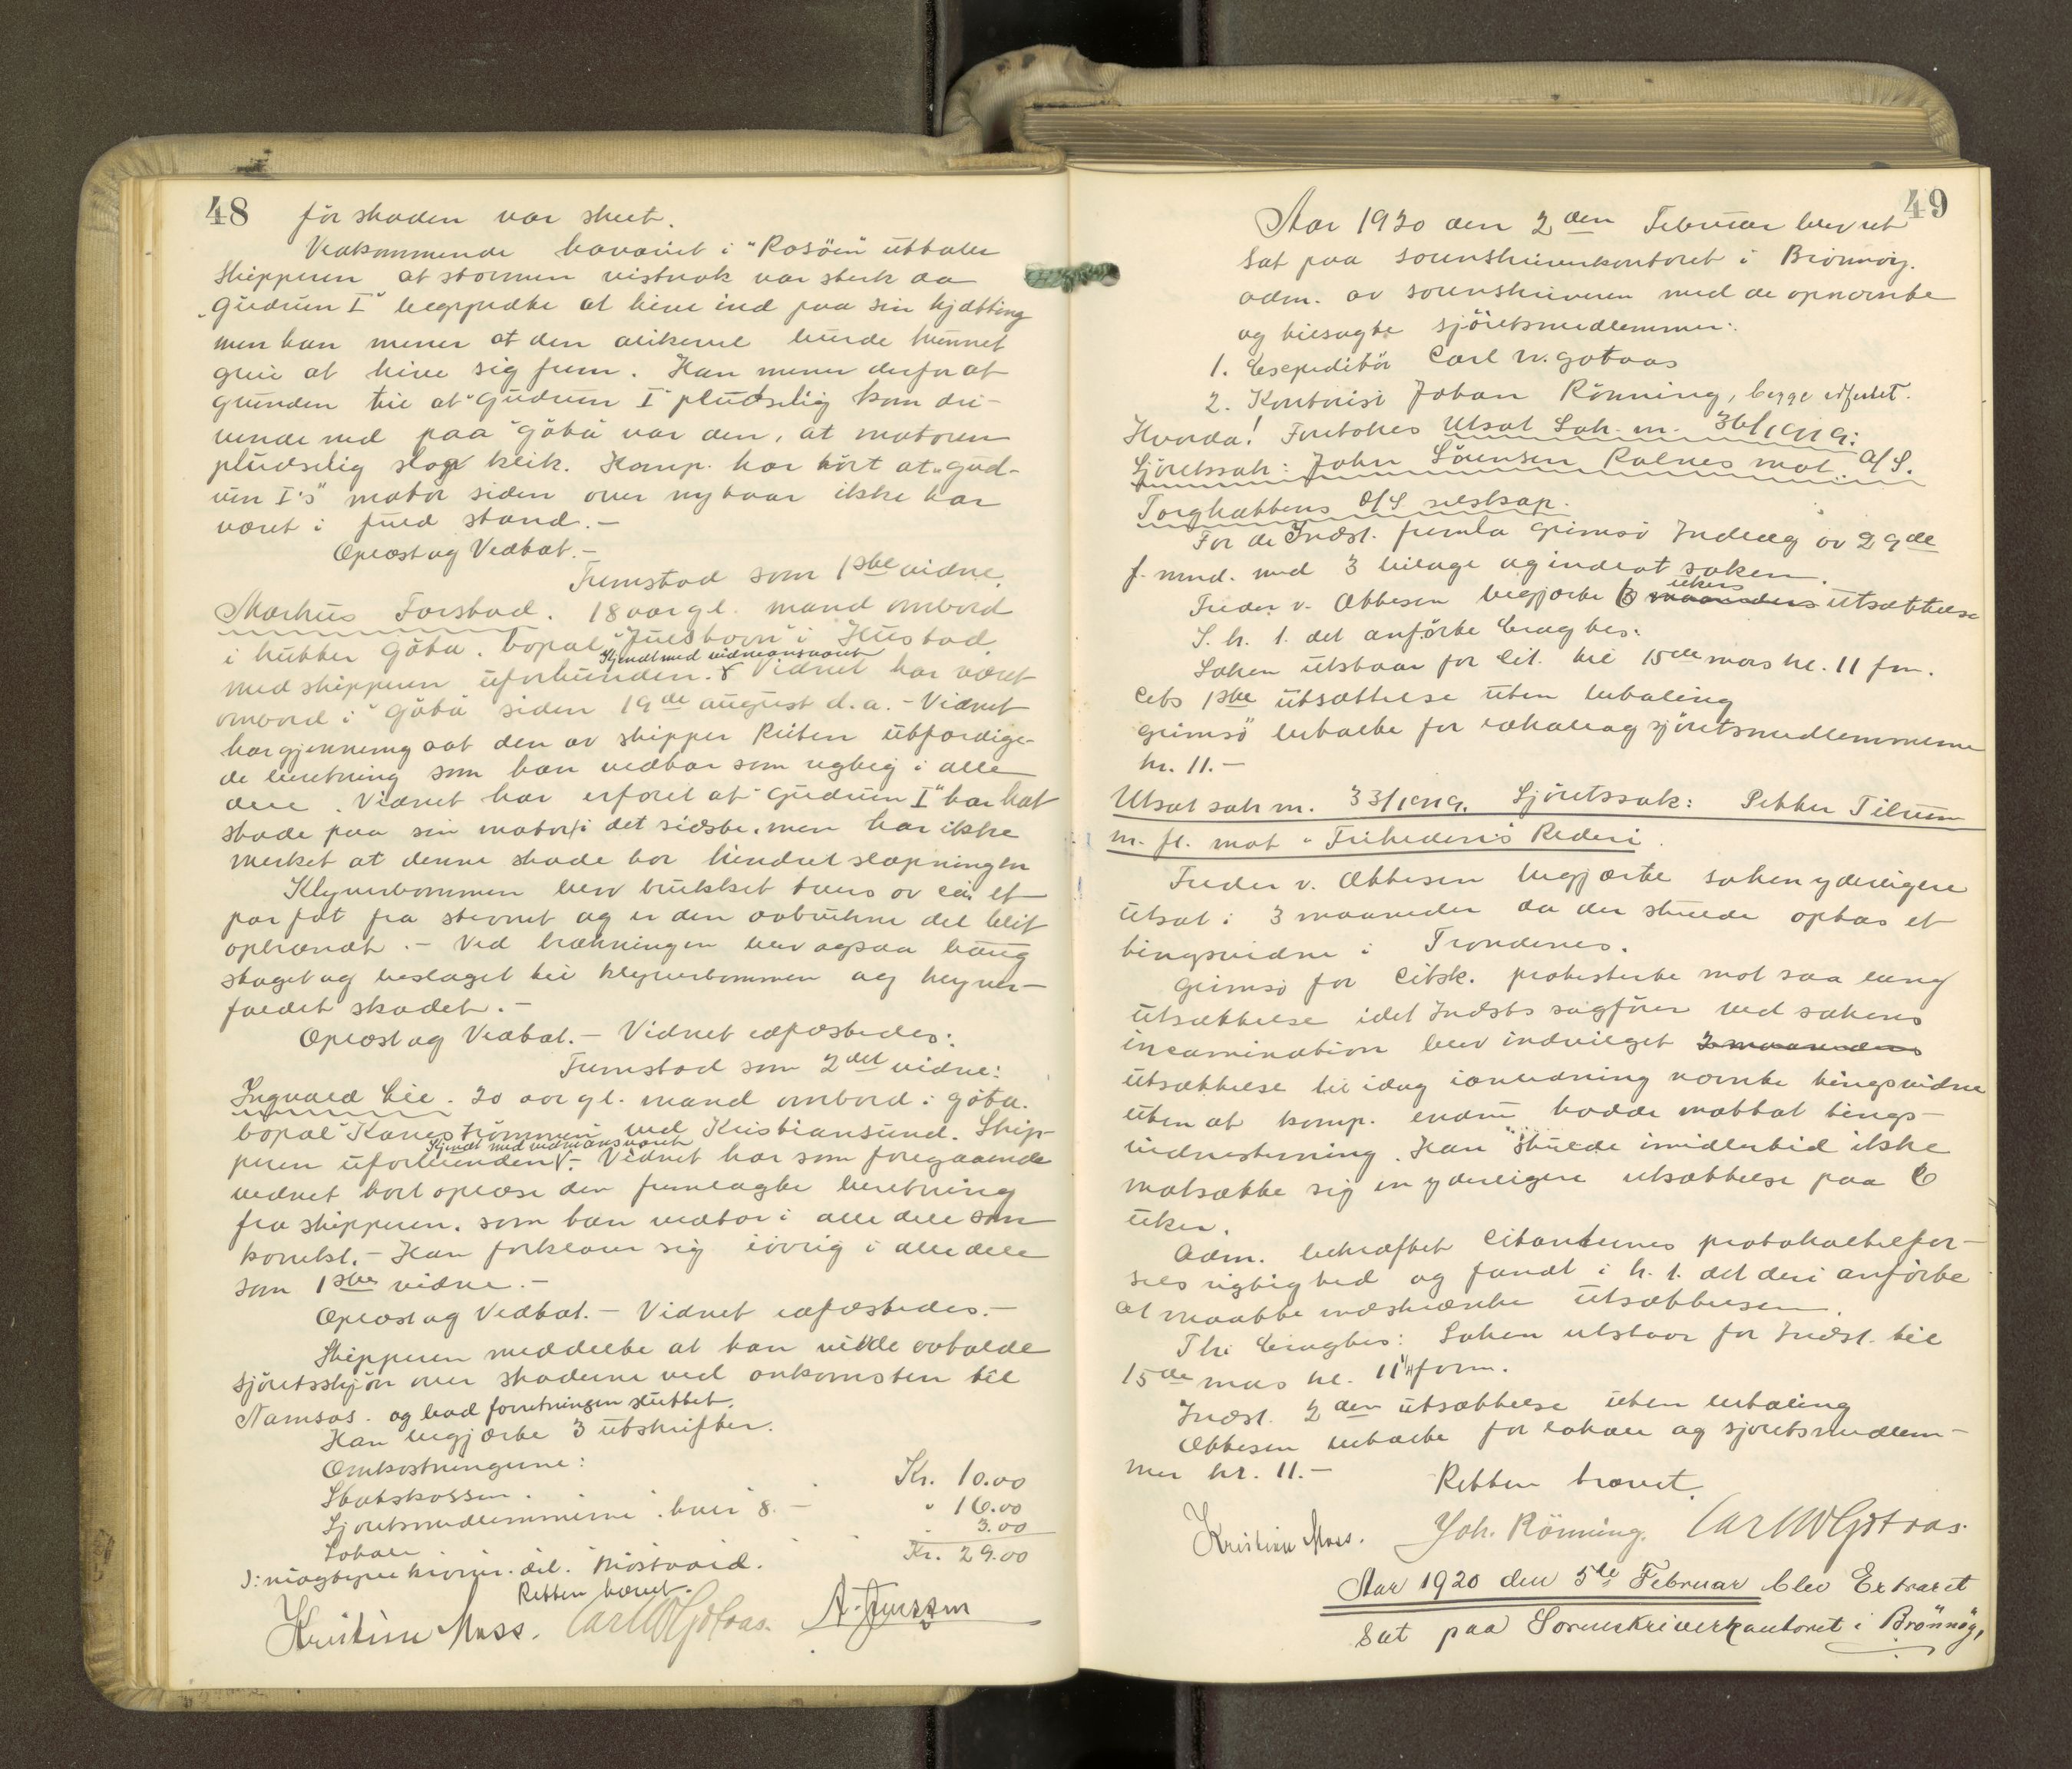 48
før skaden var skeet.
Vedkommende havariet i "Rosöen" uttaler
skipperen at stormen vistnok var sterk da
"Gudrun I" begyndte at hive ind paa sin kjætting
men han mener at den allikevel burde kunnet
greie at hive sig frem. Han mener derfor at
grunden til at "Gudrun I" pludselig kom dri-
vende ned paa "Göta" var den, at motoren
pludselig slog klik. Komp. har hørt at "Gud-
run I's" motor siden over nyttaar ikke har
været i fuld stand.-
Oplæst og Vedtat.-
Fremstod som 1ste vidne.
Markus Forstad. 18 aar gl. mand ombord
i kutter Göta. bopæl "Julshavn" i Hustad.
Kjendt med vidneansvaret
med skipperen uforbunden. Vidnet har været
ombord i "Göta" siden 19de august d.a. - Vidnet
har gjennemgaat den av skipper Riiten utfærdige-
de beretning som han vedtar som rigtig i alle
dele. Vidnet har erfaret at "Gudrun I" har hat
skade paa sin motor i det sidste, men har ikke
merket at denne skade har hindret slæpningen
Klyverbommen blev brukket tvers av ca. et
par fot fra stevnet og er den avbrukne del blit
opbrændt. - Ved brækningen blev ogsaa baug
staget og beslaget til klyverbommen og klyver-
faldet skadet.-
Oplæst og Vedtat. - Vidnet edfæstedes:
Fremstod som 2det vidne:
Ingvald Lie. 20 aar gl. mand ombord i Göta.
bopæl "Kanestrømmen" ved Kristiansund. Skip-
Kjendt med vidneansvaret
peren uforbunden. - Vidnet har som foregaaende
vidnet hørt oplæse den fremlagte beretning
fra skipperen, som han vedtar i alle dele som
korrekt. - Han forklarer sig iøvrig i alle dele
som 1ste vidne.-
Oplæst og Vedtat. - Vidnet edfæstedes.-
Skipperen meddelte at han vilde avholde
sjøretsskjøn over skaderne ved ankomsten til
Namsos. og bad forretningen sluttet.
Han begjærte 3 utskrifter.
Omkostningerne:
Statskassen. Kr. 10.00
Sjøretsmedlemmerne. hver 8.- " 16.00
Lokale " 3.00
Kr. 29.00
Retten hævet.
Kristian Moss. Carl W Gotaas. A. Jenssen
49
Aar 1920 den 2den Februar blev ret
sat paa sorenskriverkontoret i Brønnøy.
adm. av sorenskriveren med de opnævnte
og tilsagte sjøretsmedlemmer:
1. Expeditør Carl W. Gotaas
2. Kontorist Johan Rønning, begge edfæstet.
Hvorda! Foretokes Utsat Sak nr. 36/1919:
Sjøretssak: John Sørensen Ralnes mot A/S.
Torghattens A/S selskap.
For de Indst. fremla Grimsø Indlæg av 29de
f. mnd. med 3 bilage og indlot saken.
ukers
Freder v. Abbesen begjærte 6 maaneders utsættelse
I h. t. det anførte Eragtes:
Saken utstaar for Cit. til 15de mars kl. 11 fm.
Cits 1ste utsættelse uten betaling
Grimsø betalte for lokale og sjøretsmedlemmerne
kr. 11.-
Utsat sak nr. 33/1919. Sjøretssak: Petter Tilrum
m. fl. mot "Friheden's Rederi.
Freder v. Abbesen begjærte saken yderligere
utsat i 3 maaneder da der skulde optas et
tingsvidne i Trondenes.
Grimsø for Citsk. protesterte mot saa lang
utsættelse idet Indsts sagfører ved sakens
incamination blev indvilget 2 maaneders
utsættelse til idag i anledning nævnte tingsvidne
uten at komp. endnu hadde mottat tings-
vidnestevning. Han skulde imidlertid ikke
motsætte sig en yderligere utsættelse paa 6
uker.
Adm. bekræftet Citanternes protokoltilfør-
sels rigtighed og fandt i h. t. det deri anførte
at maatte indskrænke utsættelsen.
Thi Eragtes: Saken utstaar for Indst. til
15de mars kl. 11¼ form.
Indst. 2den utsættelse uten betaling
Abbesen betalte for lokale og sjøretsmedlem-
mer kr. 11.-
Retten hævet.
Kristian Moss. Joh. Rönning. Carl W Gotaas.
Aar 1920 den 5te Februar blev Extraret
Sat paa Sorenskriverkontoret i Brönnöy,